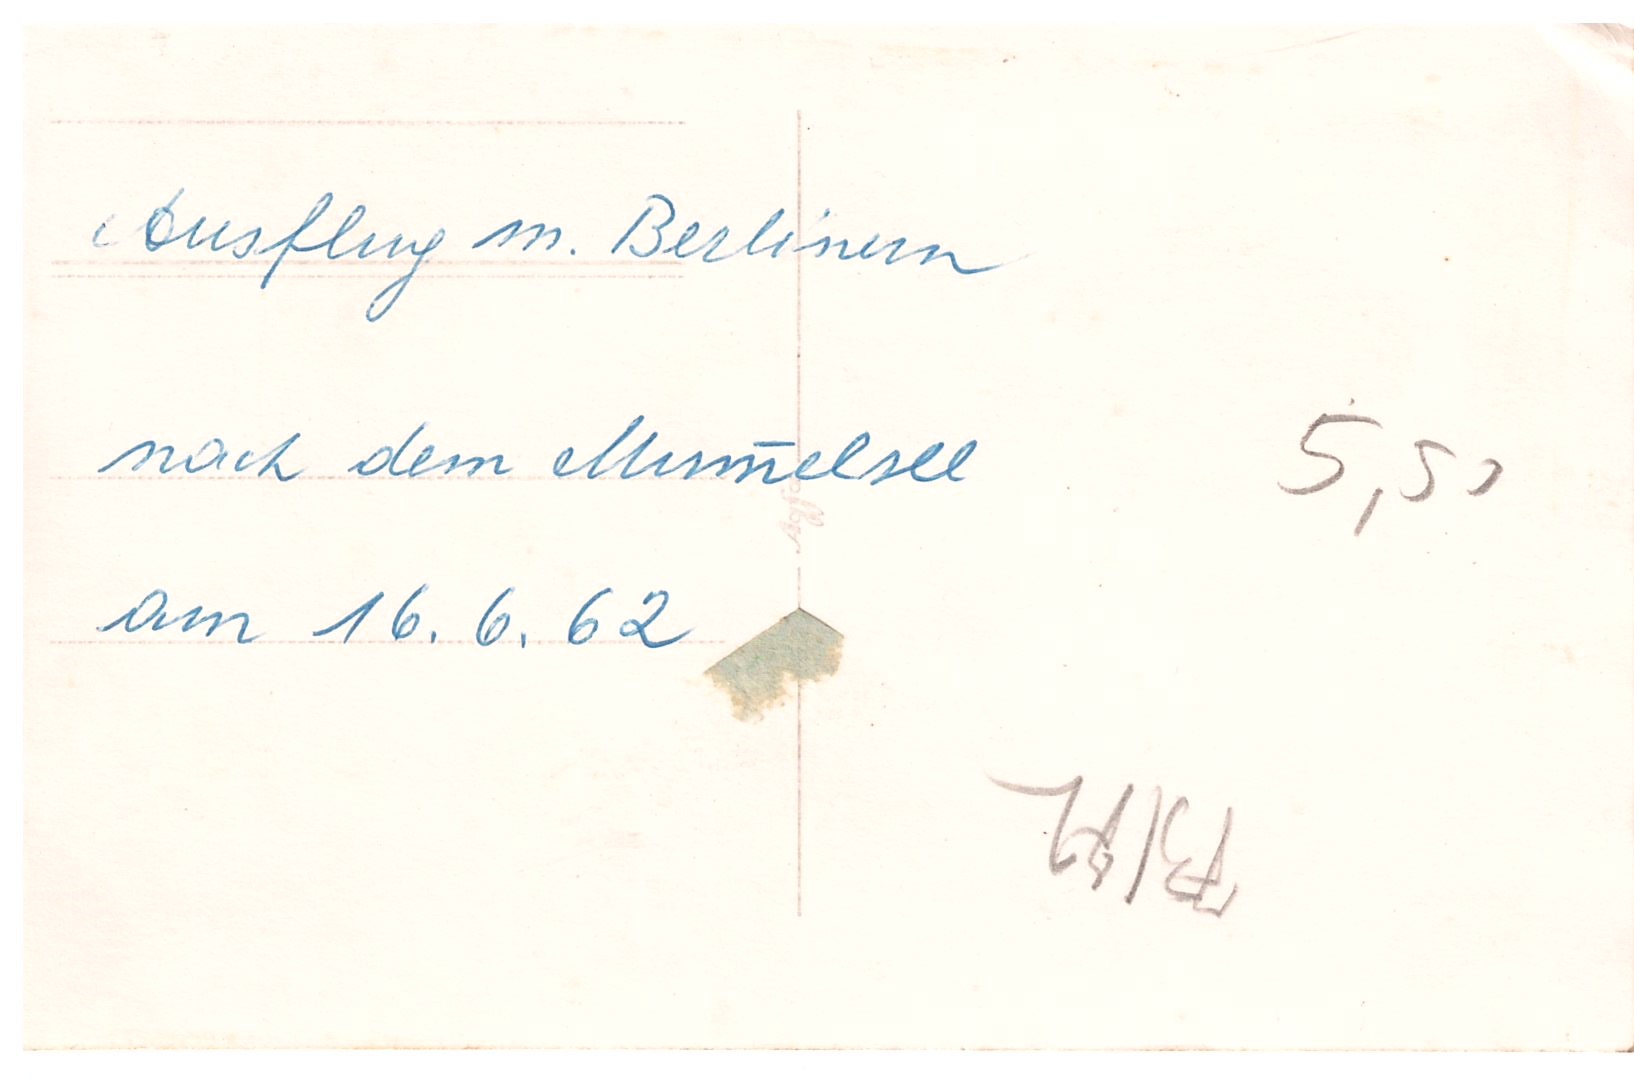 Ausflug m. Berlinern
nach dem Mum̅elsee
am 16. 6. 62
5,50
Agfa